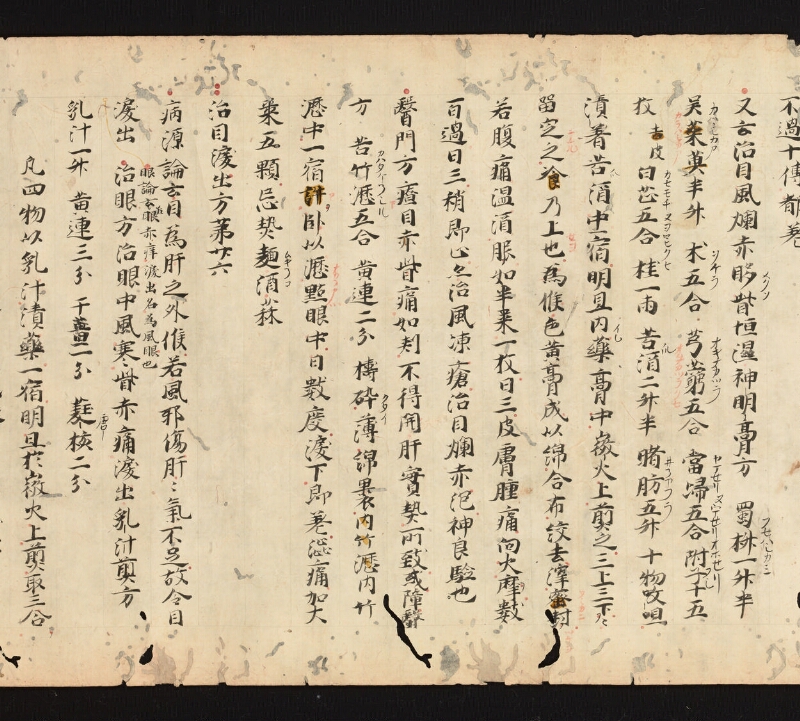 不過十傅都差
又云治目風爛赤眵眥恒濕神明膏方　蜀椒一升半
吴茱萸半升　朮五合　芎藭五合　當歸五合　附子十五
枚 去皮　白芷五合　桂一兩　苦酒二升半　猪肪五升　十物㕮咀
漬著苦酒中一宿明旦内藥膏中微火上煎之三上三下々
留定之冷乃上也為候色黄膏成以綿合布絞去滓蜜封
若腹痛温酒服如半棗一枚日三皮膚腫痛向火摩數
百過日三稍即治風凍瘡治目爛赤神良驗也
醫門方療目赤眥痛如刺不得開肝實熱所致或障翳
方　苦竹瀝五合　黄連二分　擣碎薄綿裹内竹瀝内竹
瀝中一宿卧以瀝點眼中日數度淚下即差痛加大
棗五顆忌熱麵酒蒜
治目淚出方第廿六
病源論云目為肝之外候若風邪傷肝々氣不足故令目
淚出　眼論云眼赤痒淚出名為風眼也　治眼方治眼中風寒々眥赤痛淚出乳汁煎方
乳汁一升　黄連三分　干薑一分　蕤核二分
凡四物以乳汁漬藥一宿明旦於微火上煎取三合